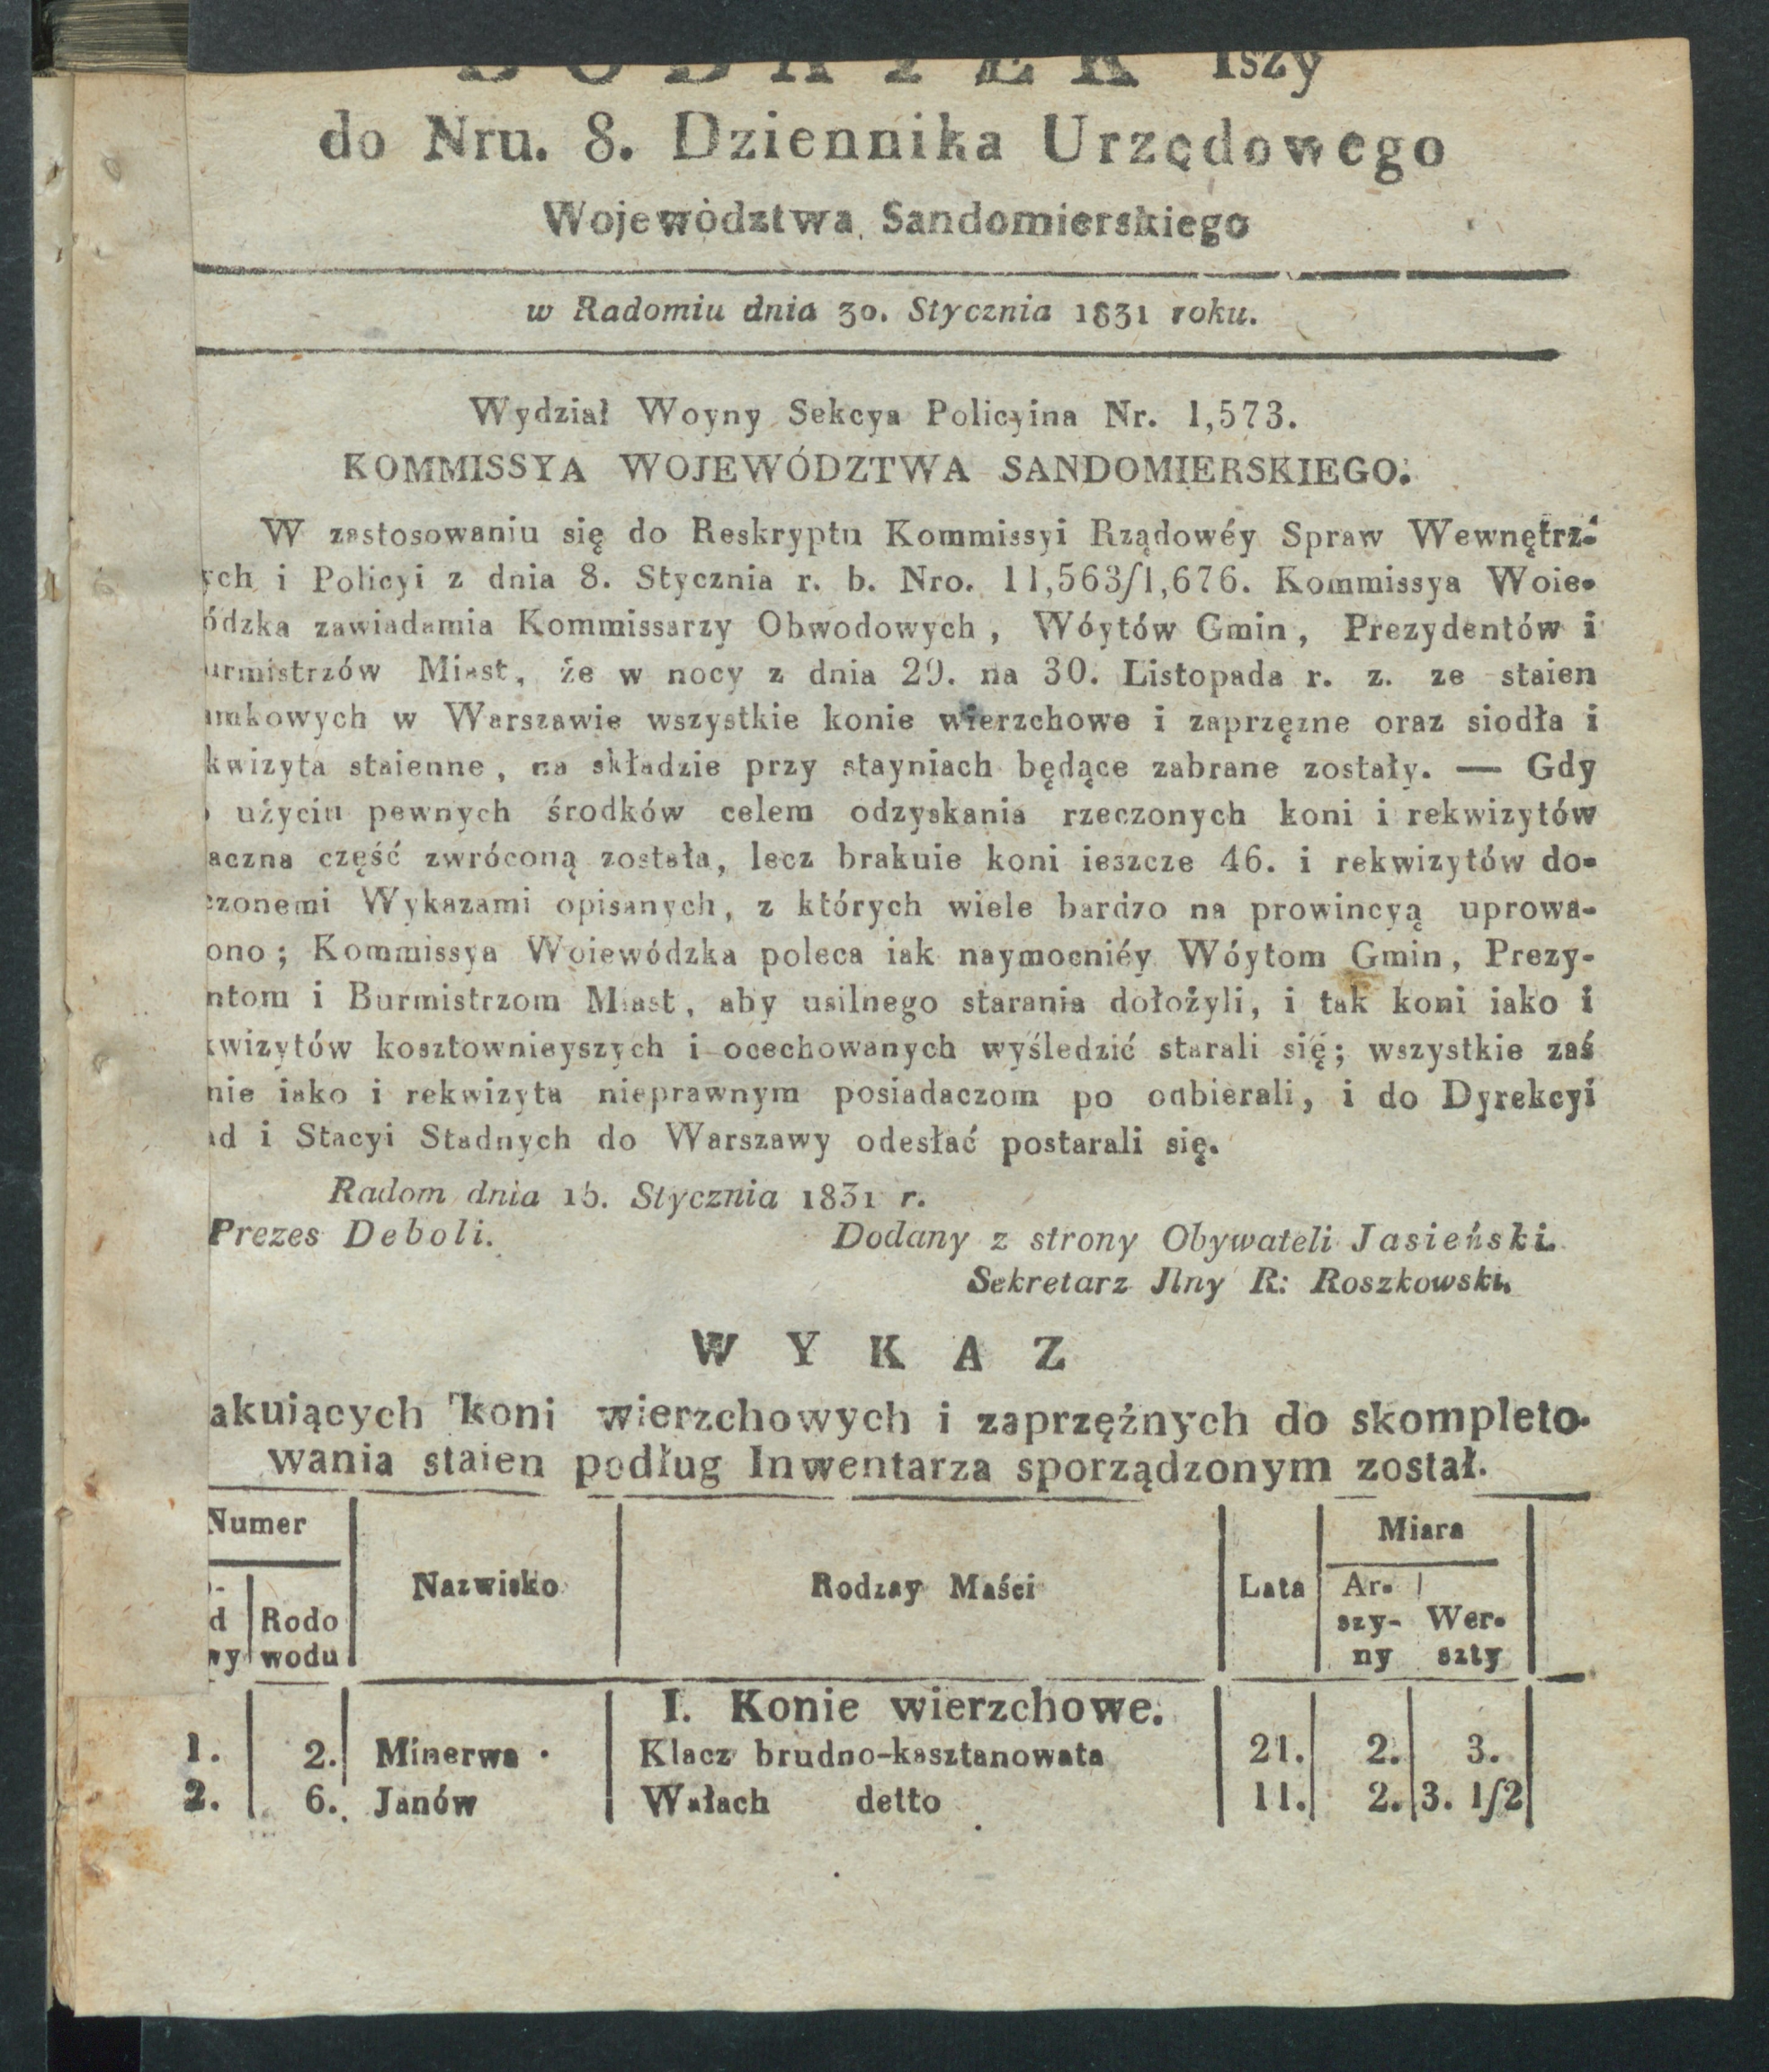 DODATEK Iszy
do Nru. 8. Dziennika Urzędowego
Województwa Sandomierskiego
w Radomiu dnia 30. Stycznia 1831 roku.
Wydział Woyny Sekcya Policyina Nr. 1,573.
KOMMISSYA WOJEWÓDZTWA SANDOMIERSKIEGO.
W zastosowaniu się do Reskryptu Kommissyi Rządowéy Spraw Wewnętrz-
ych i Policyi z dnia 8. Stycznia r. b. Nro. 11,563/1,676. Kommissya Woie-
ódzka zawiadamia Kommissarzy Obwodowych, Wóytów Gmin, Prezydentów i
urmistrzów Miast, że w nocy z dnia 29. na 30. Listopada r. z. ze staien
mkowych w Warszawie wszystkie konie wierzchowe i zaprzęzne oraz siodła i
kwizyta staienne, na składzie przy stayniach będące zabrane zostały. — Gdy
użyciu pewnych środków celem odzyskania rzeczonych koni i rekwizytów
aczna część zwróconą została, lecz brakuie koni ieszcze 46. i rekwizytów do-
czonemi Wykazami opisanych, z których wiele bardzo na prowincyą uprowa-
ono; Kommissya Woiewódzka poleca iak naymocniéy Wóytom Gmin, Prezy-
ntom i Burmistrzom Miast, aby usilnego starania dołożyli, i tak koni iako i
kwizytów kosztownieyszych i ocechowanych wyśledzić starali się; wszystkie zaś
nie iako i rekwizyta nieprawnym posiadaczom po odbierali, i do Dyrekcyi
ad i Stacyi Stadnych do Warszawy odesłać postarali się.
Radom dnia 15. Stycznia 1831 r.
Prezes Deboli. Dodany z strony Obywateli Jasieński.
Sekretarz Jlny R: Roszkowski.
WYKAZ
akuiących koni wierzchowych i zaprzężnych do skompleto-
wania staien podług Inwentarza sporządzonym został.
Numer Miara
Nazwisko Rodzay Maści Lata Ar-
d Rodo szy- Wer-
wy wodu ny szty
I. Konie wierzchowe.
1. 2. Minerwa Klacz brudno-kasztanowata 21. 2. 3.
2. 6. Janów Wałach detto 11. 2. 3. 1/2